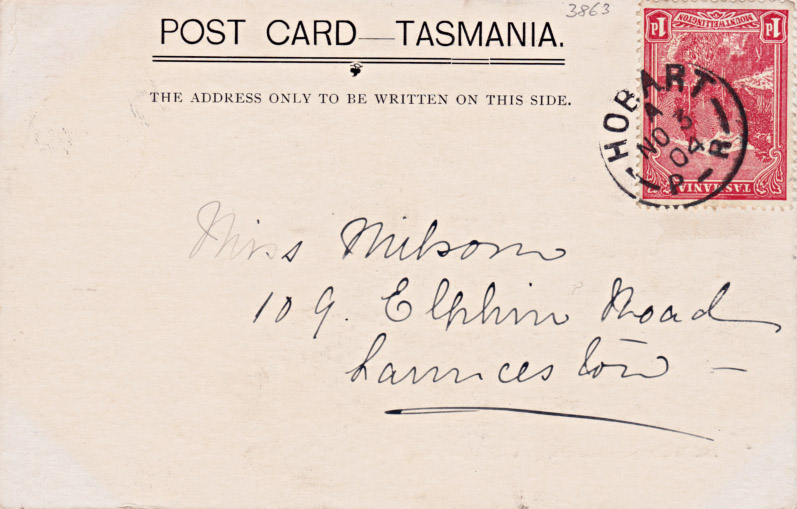 3863
POST CARD—TASMANIA.
THE ADDRESS ONLY TO BE WRITTEN ON THIS SIDE.
1d MOUNT WELLINGTON 1d
TASMANIA
HOBART
A
5
NO
04
P R
Miss Milsom
109. Elphin Road
Launceston —